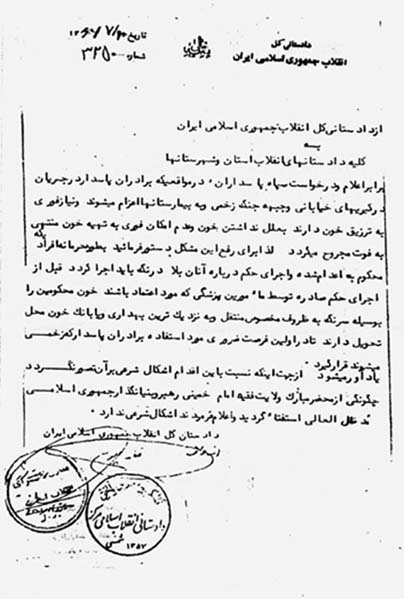 دادستانی کل
انقلاب جمهوری اسلامی ایران
تاریخ
شماره ۳۲۵۰
از دادستانی کل انقلاب جمهوری اسلامی ایران
به
کلیه دادستانهای انقلاب استان و شهرستانها
برابر اعلام و درخواست سپاه پاسداران، در مواقعیکه برادران پاسدار در جریان
درگیریهای خیابانی و جبهه جنگ زخمی و به بیمارستانها اعزام میشوند و نیاز فوری
به تزریق خون دارند بعلل نداشتن خون و عدم امکان فوری به تهیه خون منتهی
به فوت مجروح میگردد لذا برای رفع این مشکل دستور فرمائید بطور محرمانه افراد
محکوم به اعدام شده و اجرای حکم درباره آنان بلا درنگ باید اجرا گردد قبل از
اجرای حکم صادره توسط مأمورین پزشکی که مورد اعتماد باشند خون محکومین را
بوسیله سرنگ به ظروف مخصوص منتقل و به نزدیک ترین بهداری و یا بانک خون محل
تحویل دارند تا در اولین فرصت ضروری مورد استفاده برادران پاسدار که زخمی
میشوند قرار گیرد.
یادآور میشود از جهت اینکه نسبت باین اقدام اشکال شرعی بر آن تصور نگردد
چگونگی از محضر مبارک ولایت فقیه امام خمینی رهبر و بنیانگذار جمهوری اسلامی
مد ظله العالی استفتاء گردید و اعلام فرمودند اشکال شرعی ندارد.
دادستان کل انقلاب جمهوری اسلامی ایران
دادستانی انقلاب اسلامی مرکز